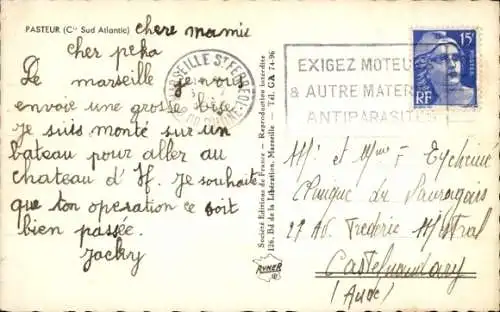 PASTEUR (Cie Sud Atlantic)
chere mamie
cher peka
De marseille je vous
envoie une grosse bise.
Je suis monté sur un
bateau pour aller au
chateau d'If. Je souhaite
que ton operation ce soit
bien passée.
Jacky
Société Editions de France - Reproduction interdite
126, Bd de la Libération, Marseille - Tél. GA 74-96
RYNER
MARSEILLE St FERREOL
EXIGEZ MOTEU
& AUTRE MATER
ANTIPARASITE
15F
POSTES
RF
Mr et Mme F Eychenne
Clinique du Lauragais
27 Av Frédéric Mistral
Castelnaudary
(Aude)